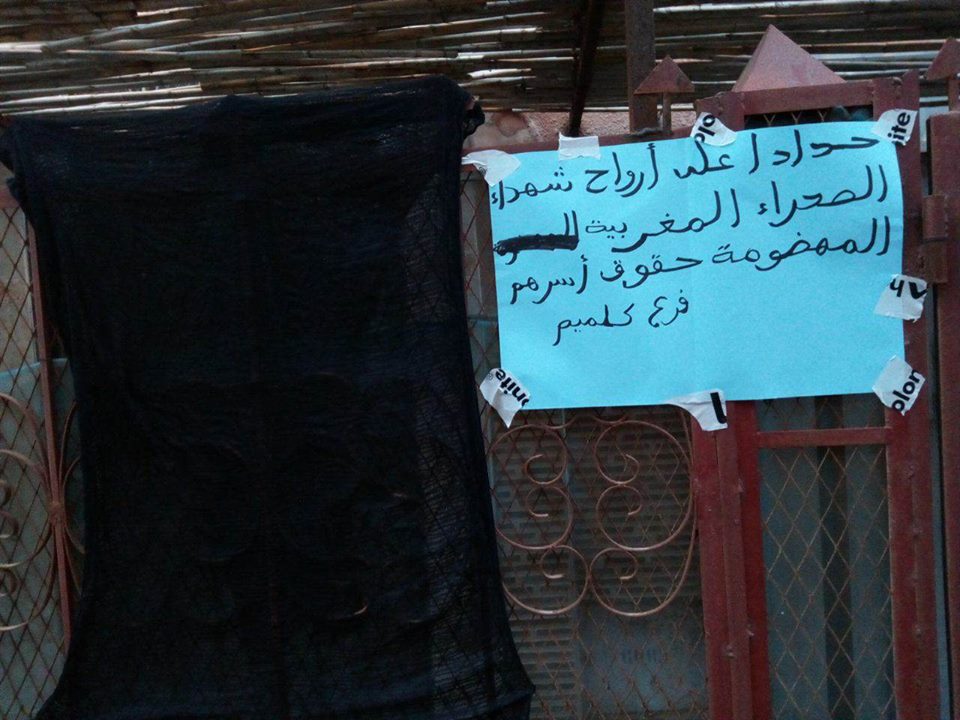 حدادا على أرواح شهداء
الصحراء المغربية
المهضومة حقوق أسرهم
فرع كلميم